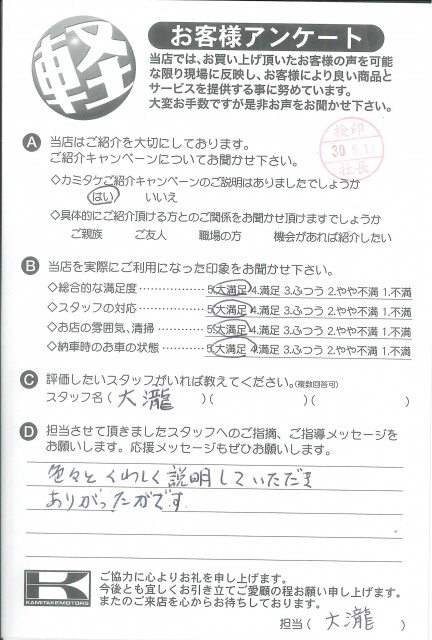 軽
お客様アンケート
当店では、お買い上げ頂いたお客様の声を可能
な限り現場に反映し、お客様により良い商品と
サービスを提供する事に努めています。
大変お手数ですが是非お声をお聞かせ下さい。
A 当店はご紹介を大切にしております。
ご紹介キャンペーンについてお聞かせ下さい。
検印
30.5.13
社長
◇カミタケご紹介キャンペーンのご説明はありましたでしょうか
はい いいえ
◇具体的にご紹介頂ける方とのご関係をお聞かせ頂けますでしょうか
ご親族 ご友人 職場の方 機会があれば紹介したい
B 当店を実際にご利用になった印象をお聞かせ下さい。
◇総合的な満足度……………… 5.大満足 4.満足 3.ふつう 2.やや不満 1.不満
◇スタッフの対応……………… 5.大満足 4.満足 3.ふつう 2.やや不満 1.不満
◇お店の雰囲気、清掃………… 5.大満足 4.満足 3.ふつう 2.やや不満 1.不満
◇納車時のお車の状態………… 5.大満足 4.満足 3.ふつう 2.やや不満 1.不満
C 評価したいスタッフがいれば教えてください。(複数回答可)
スタッフ名( 大瀧 )( )( )
D 担当させて頂きましたスタッフへのご指摘、ご指導メッセージを
お願いします。応援メッセージもぜひお願いします。
色々とくわしく説明していただき
ありがったがです
K
KAMITAKEMOTORS
ご協力に心よりお礼を申し上げます。
今後とも宜しくお引き立てご愛顧の程お願い申し上げます。
またのご来店を心からお待ちしております。
担当( 大瀧 )